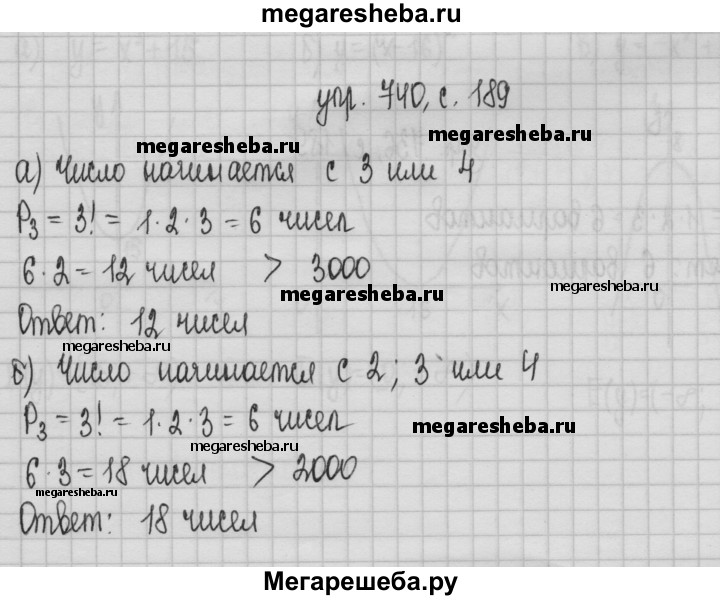 megaresheba.ru
упр. 740, с. 189
megaresheba.ru
megaresheba.ru
а) Число начинается с 3 или 4
P₃ = 3! = 1·2·3 = 6 чисел
6·2 = 12 чисел > 3000
megaresheba.ru
megaresheba.ru
Ответ: 12 чисел
megaresheba.ru
б) Число начинается с 2; 3 или 4
P₃ = 3! = 1·2·3 = 6 чисел
megaresheba.ru
megaresheba.ru
6·3 = 18 чисел > 2000
megaresheba.ru
Ответ: 18 чисел
Мегарешеба.ру